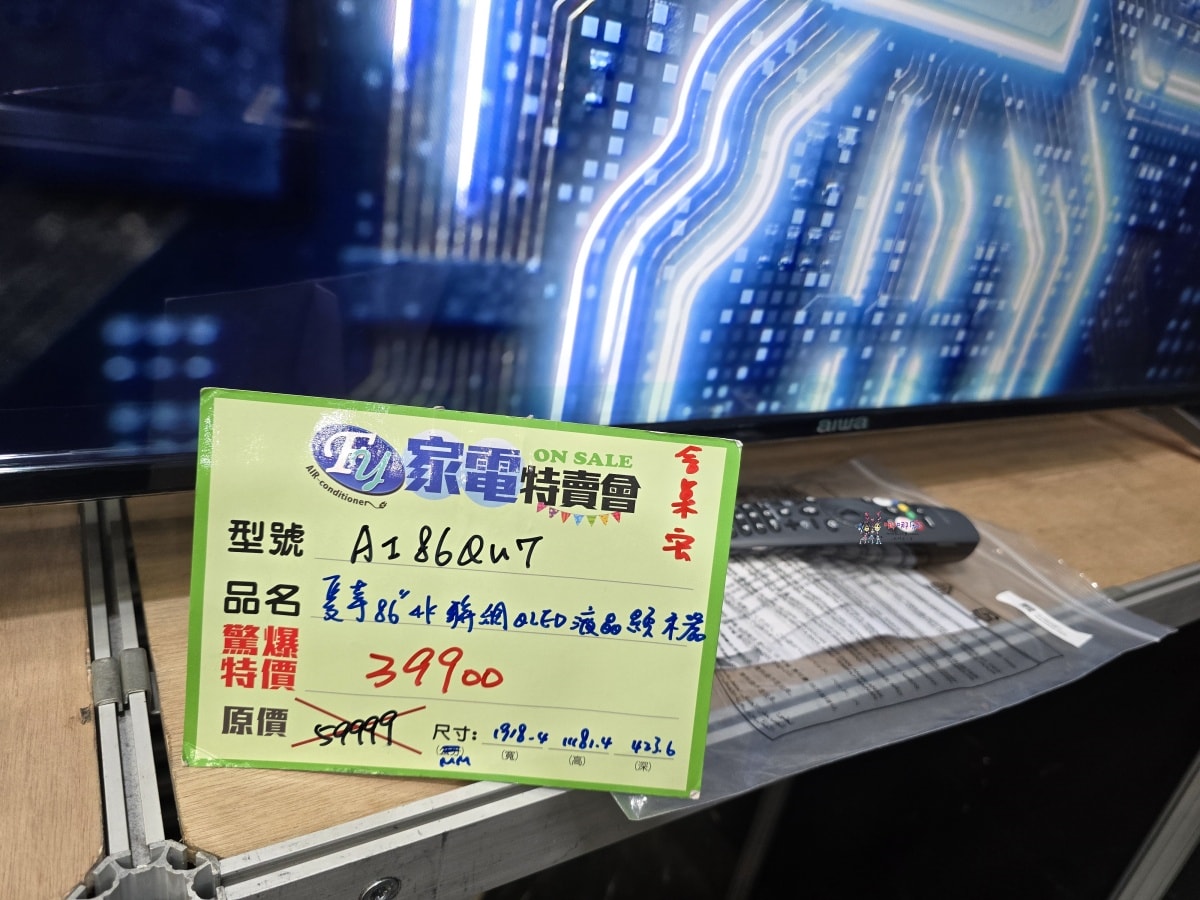 aiwa
Ty
AIR-conditioner
家電
ON SALE
特賣會
含桌安
型號 AI86QU7
品名 愛華86"4K聯網QLED液晶顯示器
驚爆特價 39900
原價 59999
尺寸: 1918.4 1181.4 423.6
MM (寬) (高) (深)